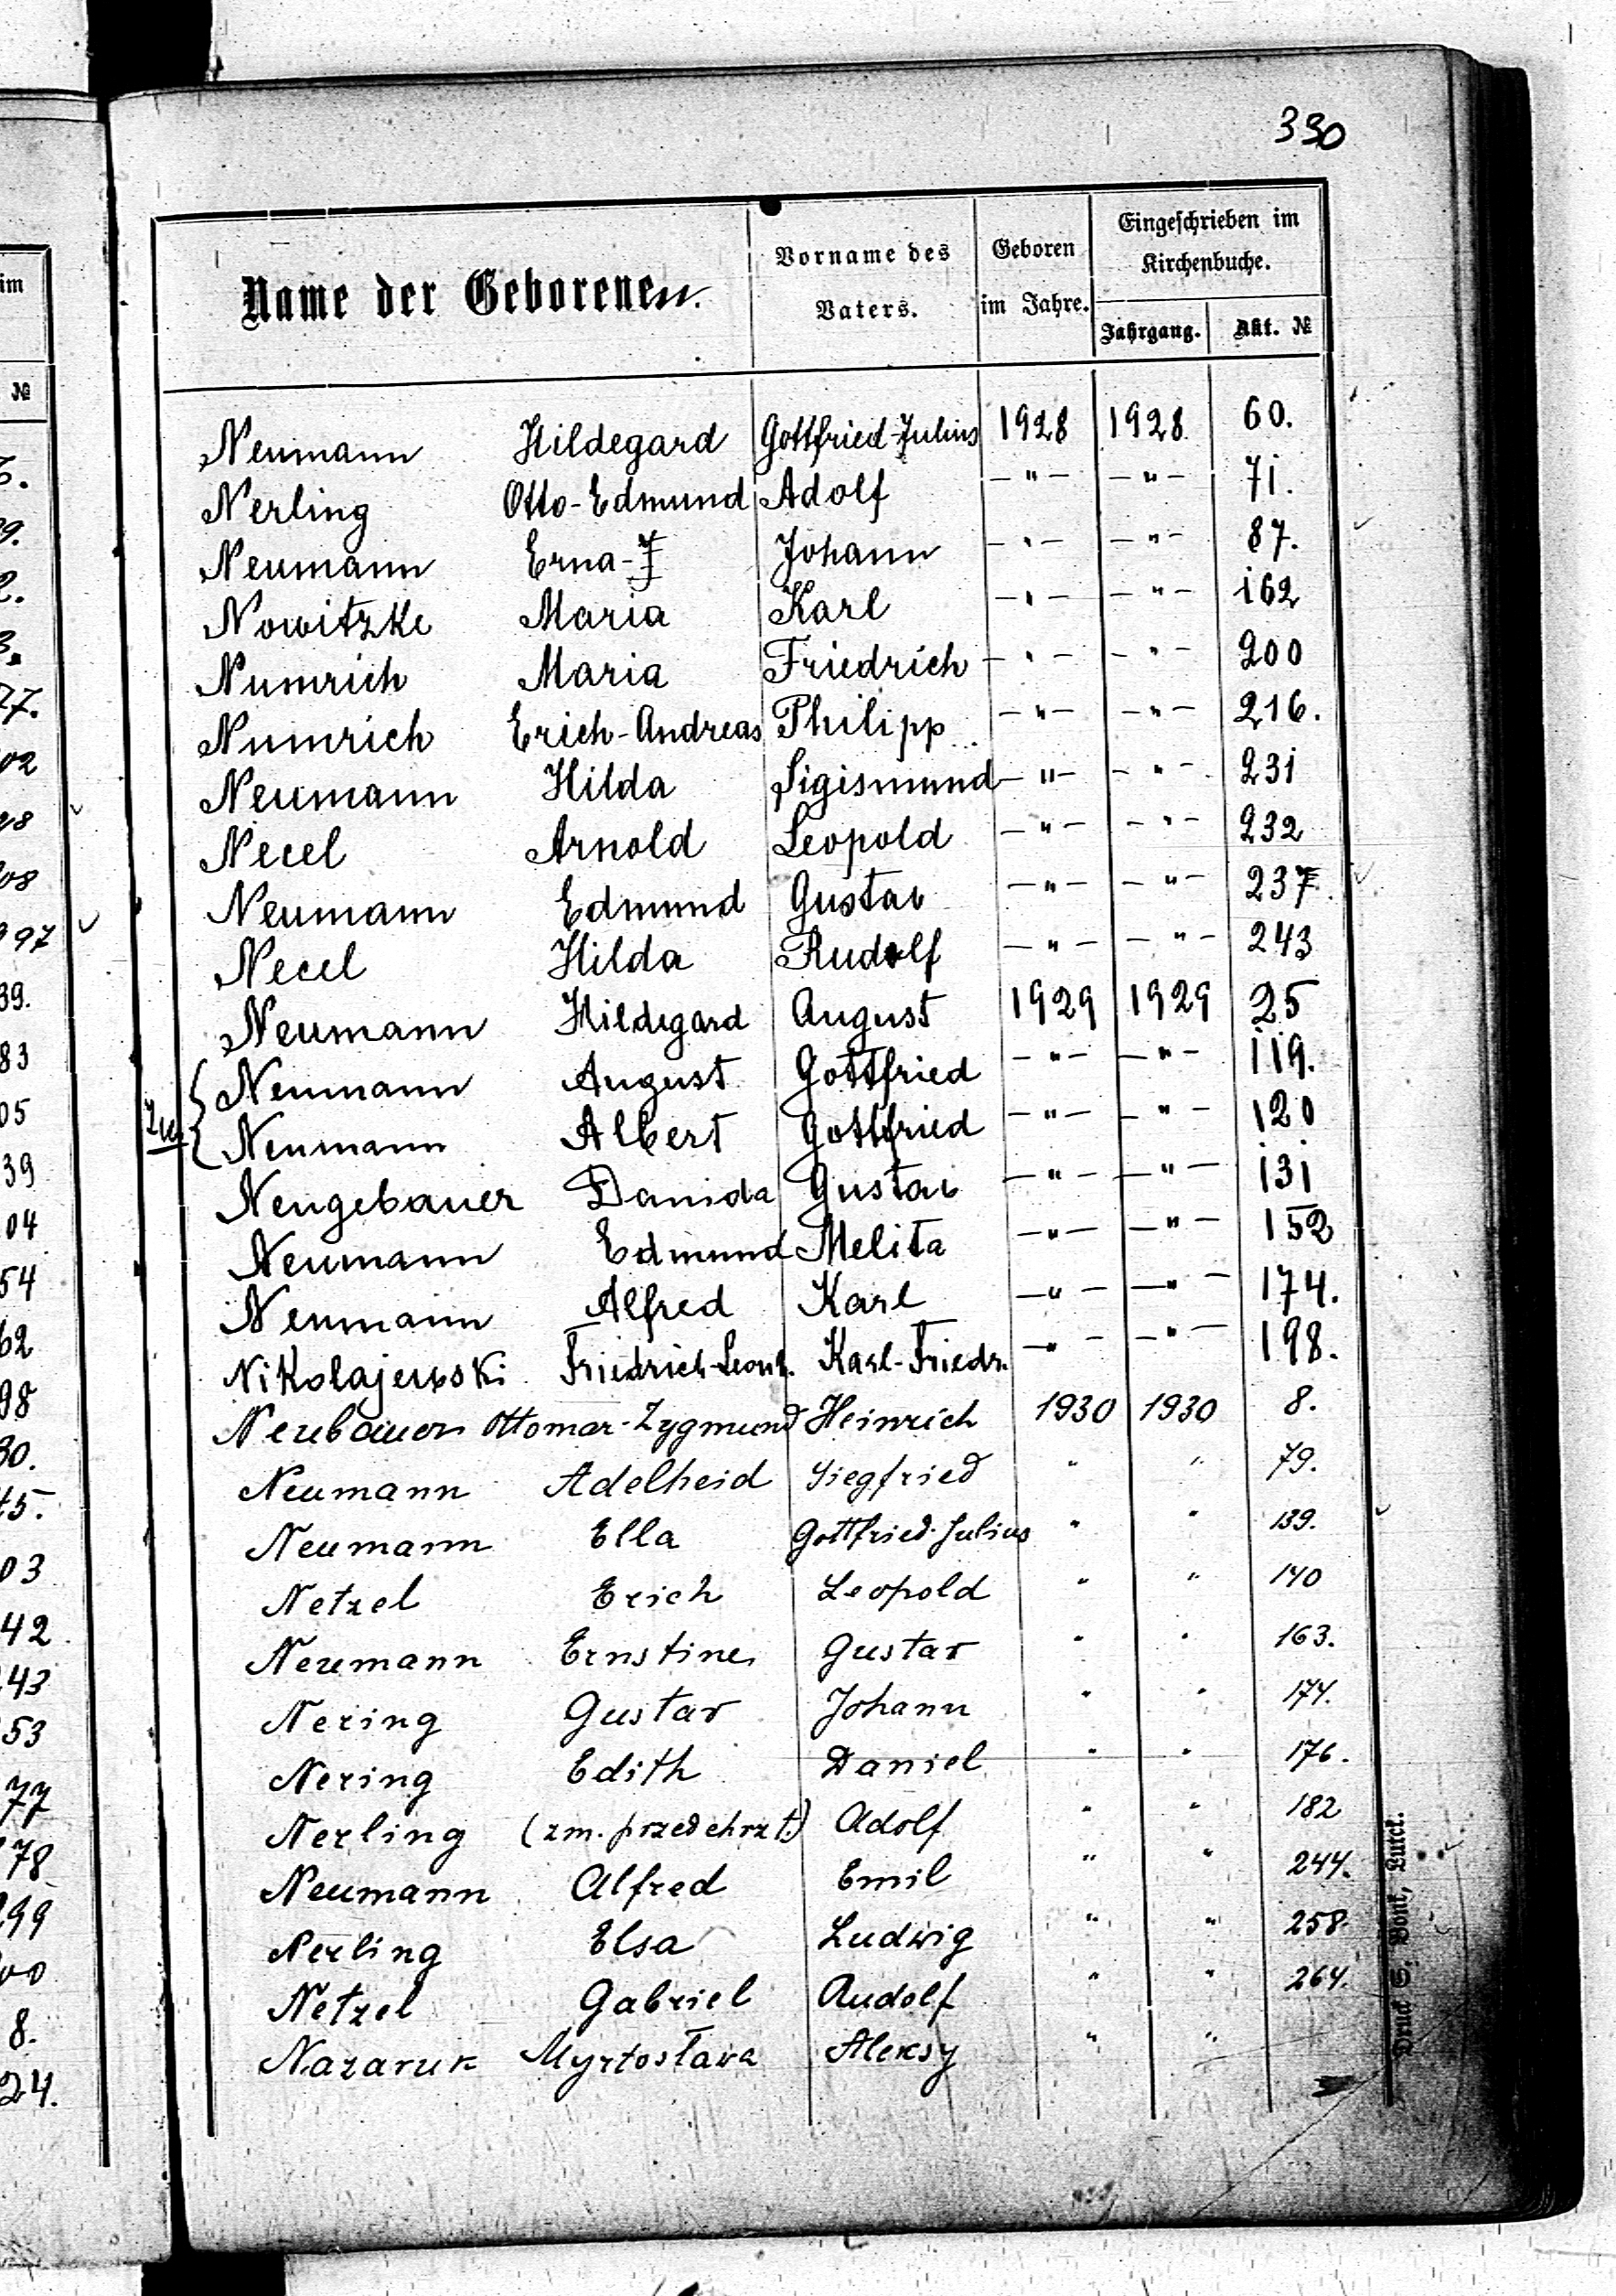 330
Name der Geborenen.
Vorname des Vaters.
Geboren im Jahre.
Eingeschrieben im Kirchenbuche.
Jahrgang. Akt. №
Neumann Hildegard Gottfried-Julius 1928 1928 60.
Nerling Otto-Edmund Adolf —"— —"— 71.
Neumann Erna- Johann —"— —"— 87.
Nowitzke Maria Karl —"— —"— 162
Numrich Maria Friedrich —"— —"— 200
Numrich Erich-Andreas Philipp —"— —"— 216.
Neumann Hilda Sigismund —"— —"— 231
Necel Arnold Leopold —"— —"— 232
Neumann Edmund Gustav —"— —"— 237.
Necel Hilda Rudolf —"— —"— 243
Neumann Hildegard August 1929 1929 25
Neumann August Gottfried —"— —"— 119.
Neumann Albert Gottfried —"— —"— 120
Neugebauer Danida Gustav —"— —"— 131
Neumann Edmund Melita —"— —"— 152
Neumann Alfred Karl —"— —"— 174.
Nikolajewski Friedrich-Leonh. Karl-Friedr. —"— —"— 198.
Neubauer Ottomar-Zygmund Heinrich 1930 1930 8.
Neumann Adelheid Siegfried " " 79.
Neumann Ella Gottfried-Julius " " 139.
Netzel Erich Leopold " " 140
Neumann Ernstine Gustav " " 163.
Nering Gustav Johann " " 174.
Nering Edith Daniel " " 176.
Nerling (zm. przed chrzt.) Adolf " " 182
Neumann Alfred Emil " " 244.
Nerling Elsa Ludwig " " 258.
Netzel Gabriel Rudolf " " 264.
Nazaruk Myrtosława Aleksy " "
im
№
77.
02
08
97
39.
83
05
39
04
54
62
98
30.
45.
03
42
43
53
77
78
99
00
8.
24.